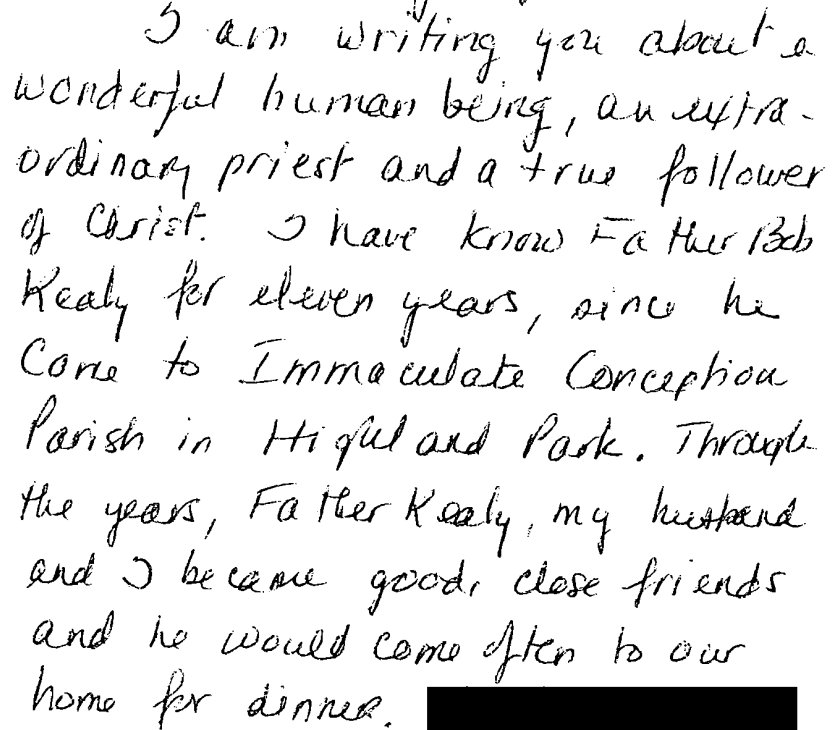 I am writing you about a
wonderful human being, an extra-
ordinary priest and a true follower
of Christ. I have know Father Bob
Kealy for eleven years, since he
Came to Immaculate Conception
Parish in Highland Park. Through
the years, Father Kealy, my husband
and I became good, close friends
and he would come often to our
home for dinner.